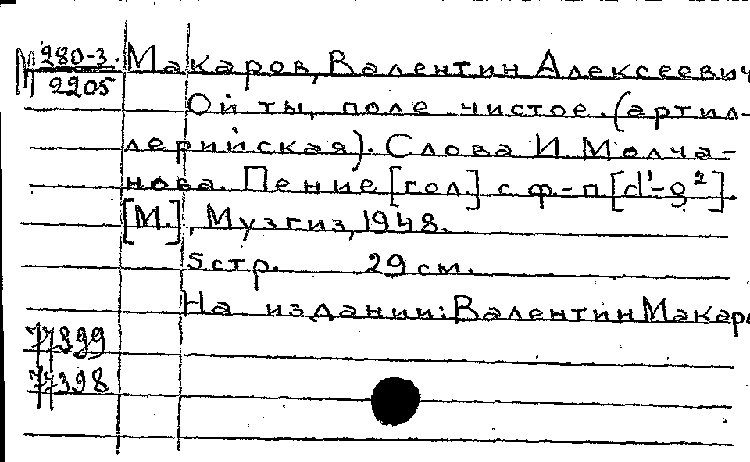 М 280-3. Макаров, Валентин Алексеевич
2205
Ой ты, поле чистое. (артил-
лерийская). Слова И Молча-
нова. Пение [гол.] с ф-п [d¹-g²].
[М.], Музгиз, 1948.
5 стр. 29 см.
На издании: Валентин Макаро
77399
77398